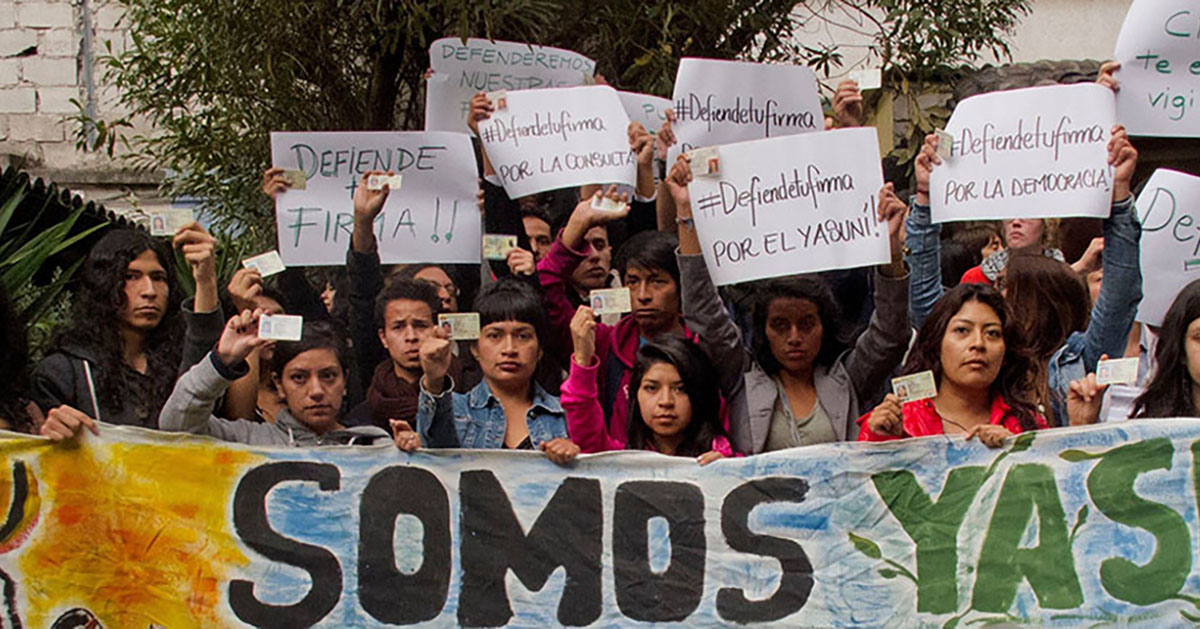 DEFENDEREMOS
NUESTRAS
DEFIENDE
FIRMA!!
#Defiendetufirma
POR LA CONSULTA
#Defiendetufirma
#Defiendetufirma
POR EL YASUNÍ!
#Defiendetufirma
POR LA DEMOCRACIA!
te e
vigi
SOMOS YAS